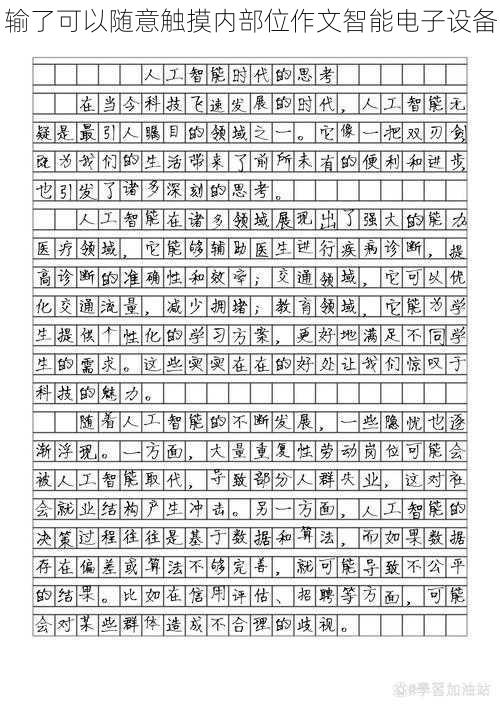 输了可以随意触摸内部位作文智能电子设备
人工智能时代的思考
在当今科技飞速发展的时代，人工智能无
疑是最引人瞩目的领域之一。它像一把双刃剑，
既为我们的生活带来了前所未有的便利和进步，
也引发了诸多深刻的思考。
人工智能在诸多领域展现出了强大的能力
医疗领域，它能够辅助医生进行疾病诊断，提
高诊断的准确性和效率；交通领域，它可以优
化交通流量，减少拥堵；教育领域，它能为学
生提供个性化的学习方案，更好地满足不同学
生的需求。这些实实在在的好处让我们惊叹于
科技的魅力。
随着人工智能的不断发展，一些隐忧也逐
渐浮现。一方面，大量重复性劳动岗位可能会
被人工智能取代，导致部分人群失业，这对社
会就业结构产生冲击。另一方面，人工智能的
决策过程往往是基于数据和算法，而如果数据
存在偏差或算法不够完善，就可能导致不公平
的结果。比如在信用评估、招聘等方面，可能
会对某些群体造成不合理的歧视。
學習加油站